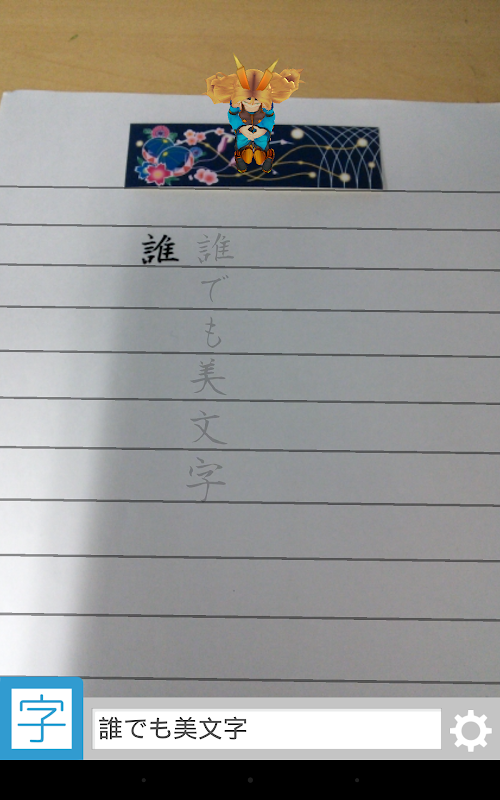 誰
誰でも美文字
字
誰でも美文字